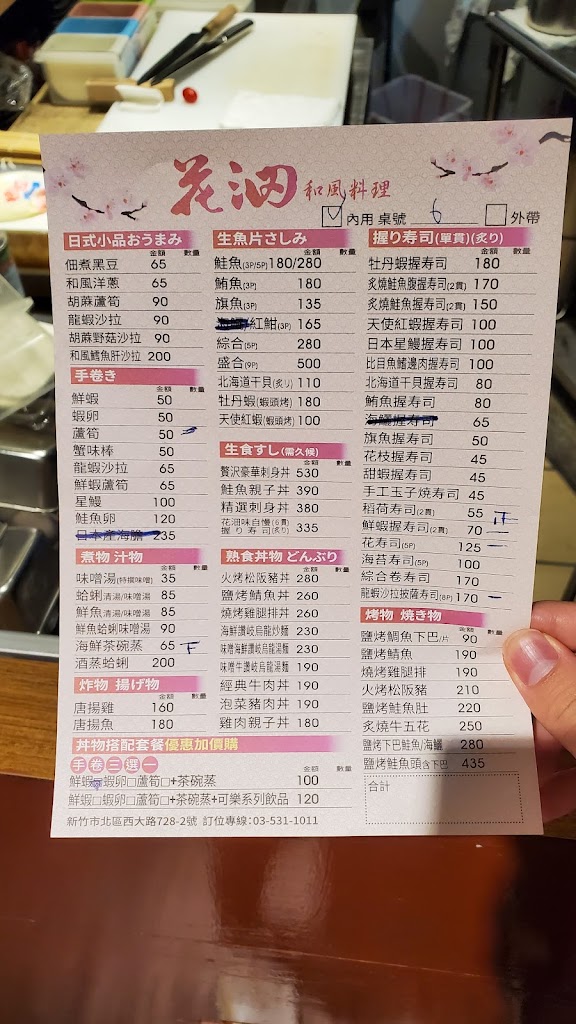 花泗 和風料理
內用 桌號 6 外帶
日式小品おうまみ
金額 數量
佃煮黑豆 65
和風洋蔥 65
胡蔴蘆筍 90
龍蝦沙拉 90
胡蔴野菇沙拉 90
和風鱈魚肝沙拉 200
手卷き
金額 數量
鮮蝦 50
蝦卵 50
蘆筍 50
蟹味棒 50
龍蝦沙拉 65
鮮蝦蘆筍 65
星鰻 100
鮭魚卵 120
日本產海膽 235
煮物 汁物
金額 數量
味噌湯(特撰味噌) 35
蛤蜊清湯/味噌湯 85
鮮魚清湯/味噌湯 85
鮮魚蛤蜊味噌湯 90
海鮮茶碗蒸 65 下
酒蒸蛤蜊 200
炸物 揚げ物
金額 數量
唐揚雞 160
唐揚魚 180
生魚片さしみ
金額 數量
鮭魚(3P/5P) 180/280
鮪魚(3P) 180
旗魚(3P) 135
紅魽(3P) 165
綜合(5P) 280
盛合(9P) 500
北海道干貝(炙り) 110
牡丹蝦(蝦頭烤) 180
天使紅蝦(蝦頭烤) 100
生食すし(需久候)
金額 數量
贅沢豪華刺身丼 530
鮭魚親子丼 390
精選刺身丼 380
花泗味自慢(6貫)
握り寿司(炙り) 335
熟食丼物 どんぶり
金額 數量
火烤松阪豬丼 280
鹽烤鯖魚丼 260
燒烤雞腿排丼 260
海鮮讃岐烏龍炒麵 230
味噌海鮮讃岐烏龍湯麵 230
味噌牛讃岐烏龍湯麵 190
經典牛肉丼 190
泡菜豬肉丼 190
雞肉親子丼 180
握り寿司(單貫)(炙り)
金額 數量
牡丹蝦握寿司 180
炙燒鮭魚腹握寿司(2貫) 170
炙燒鮭魚握寿司(2貫) 150
天使紅蝦握寿司 100
日本星鰻握寿司 100
比目魚鰭邊肉握寿司 100
北海道干貝握寿司 80
鮪魚握寿司 80
海鱺握寿司 65
旗魚握寿司 50
花枝握寿司 45
甜蝦握寿司 45
手工玉子燒寿司 45
稻荷寿司(2貫) 55 正
鮮蝦握寿司(2貫) 70 一
花寿司(5P) 125 一
海苔寿司(5P) 100
綜合卷寿司 170
龍蝦沙拉披薩寿司(8P) 170 一
烤物 焼き物
金額 數量
鹽烤鯛魚下巴/片 90
鹽烤鯖魚 190
燒烤雞腿排 190
火烤松阪豬 210
鹽烤鮭魚肚 220
炙燒牛五花 250
鹽烤下巴鮭魚/海鱺 280
鹽烤鮭魚頭含下巴 435
丼物搭配套餐優惠加價購
手卷三選一 金額 數量
鮮蝦□蝦卵□蘆筍□+茶碗蒸 100
鮮蝦□蝦卵□蘆筍□+茶碗蒸+可樂系列飲品 120
合計
新竹市北區西大路728-2號 訂位專線:03-531-1011